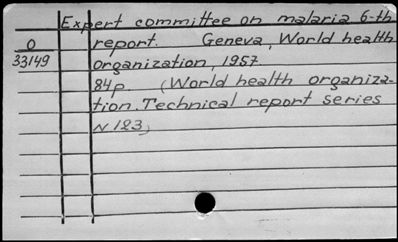 Expert committee on malaria 6-th
O report. Geneva, World health
33149 organization, 1957
84p. (World health organiza-
tion. Technical report series
N 123)